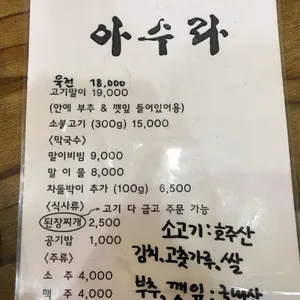 아수라
육전 18,000
고기말이 19,000
(안에 부추 & 깻잎 들어있어용)
소불고기 (300g) 15,000
<막국수>
말이비빔 9,000
말이물 8,000
차돌박이 추가 (100g) 6,500
<식사류> 고기 다 굽고 주문 가능
된장찌개 2,500
공기밥 1,000
소고기: 호주산
김치, 고춧가루, 쌀
<주류>
부추, 깻잎: 국내산
소 주 4,000
맥 주 4,000